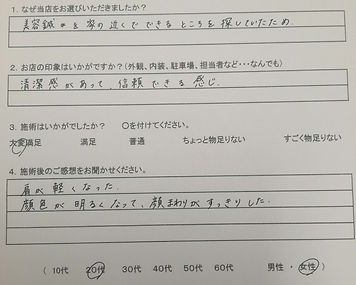 1. なぜ当店をお選びいただきましたか?
美容鍼を家の近くでできるところを探していたため.
2. お店の印象はいかがですか?(外観、内装、駐車場、担当者など・・・なんでも)
清潔感があって、信頼できる感じ.
3. 施術はいかがでしたか? 〇を付けてください。
大変満足 満足 普通 ちょっと物足りない すごく物足りない
4. 施術後のご感想をお聞かせください。
肩が軽くなった.
顔色が明るくなって、顔まわりがすっきりした.
( 10代 20代 30代 40代 50代 60代 男性 ・ 女性 )